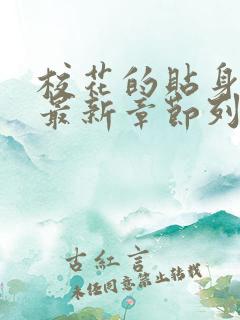 校花的貼身
最新章節列
古紅言
未经同意禁止转载